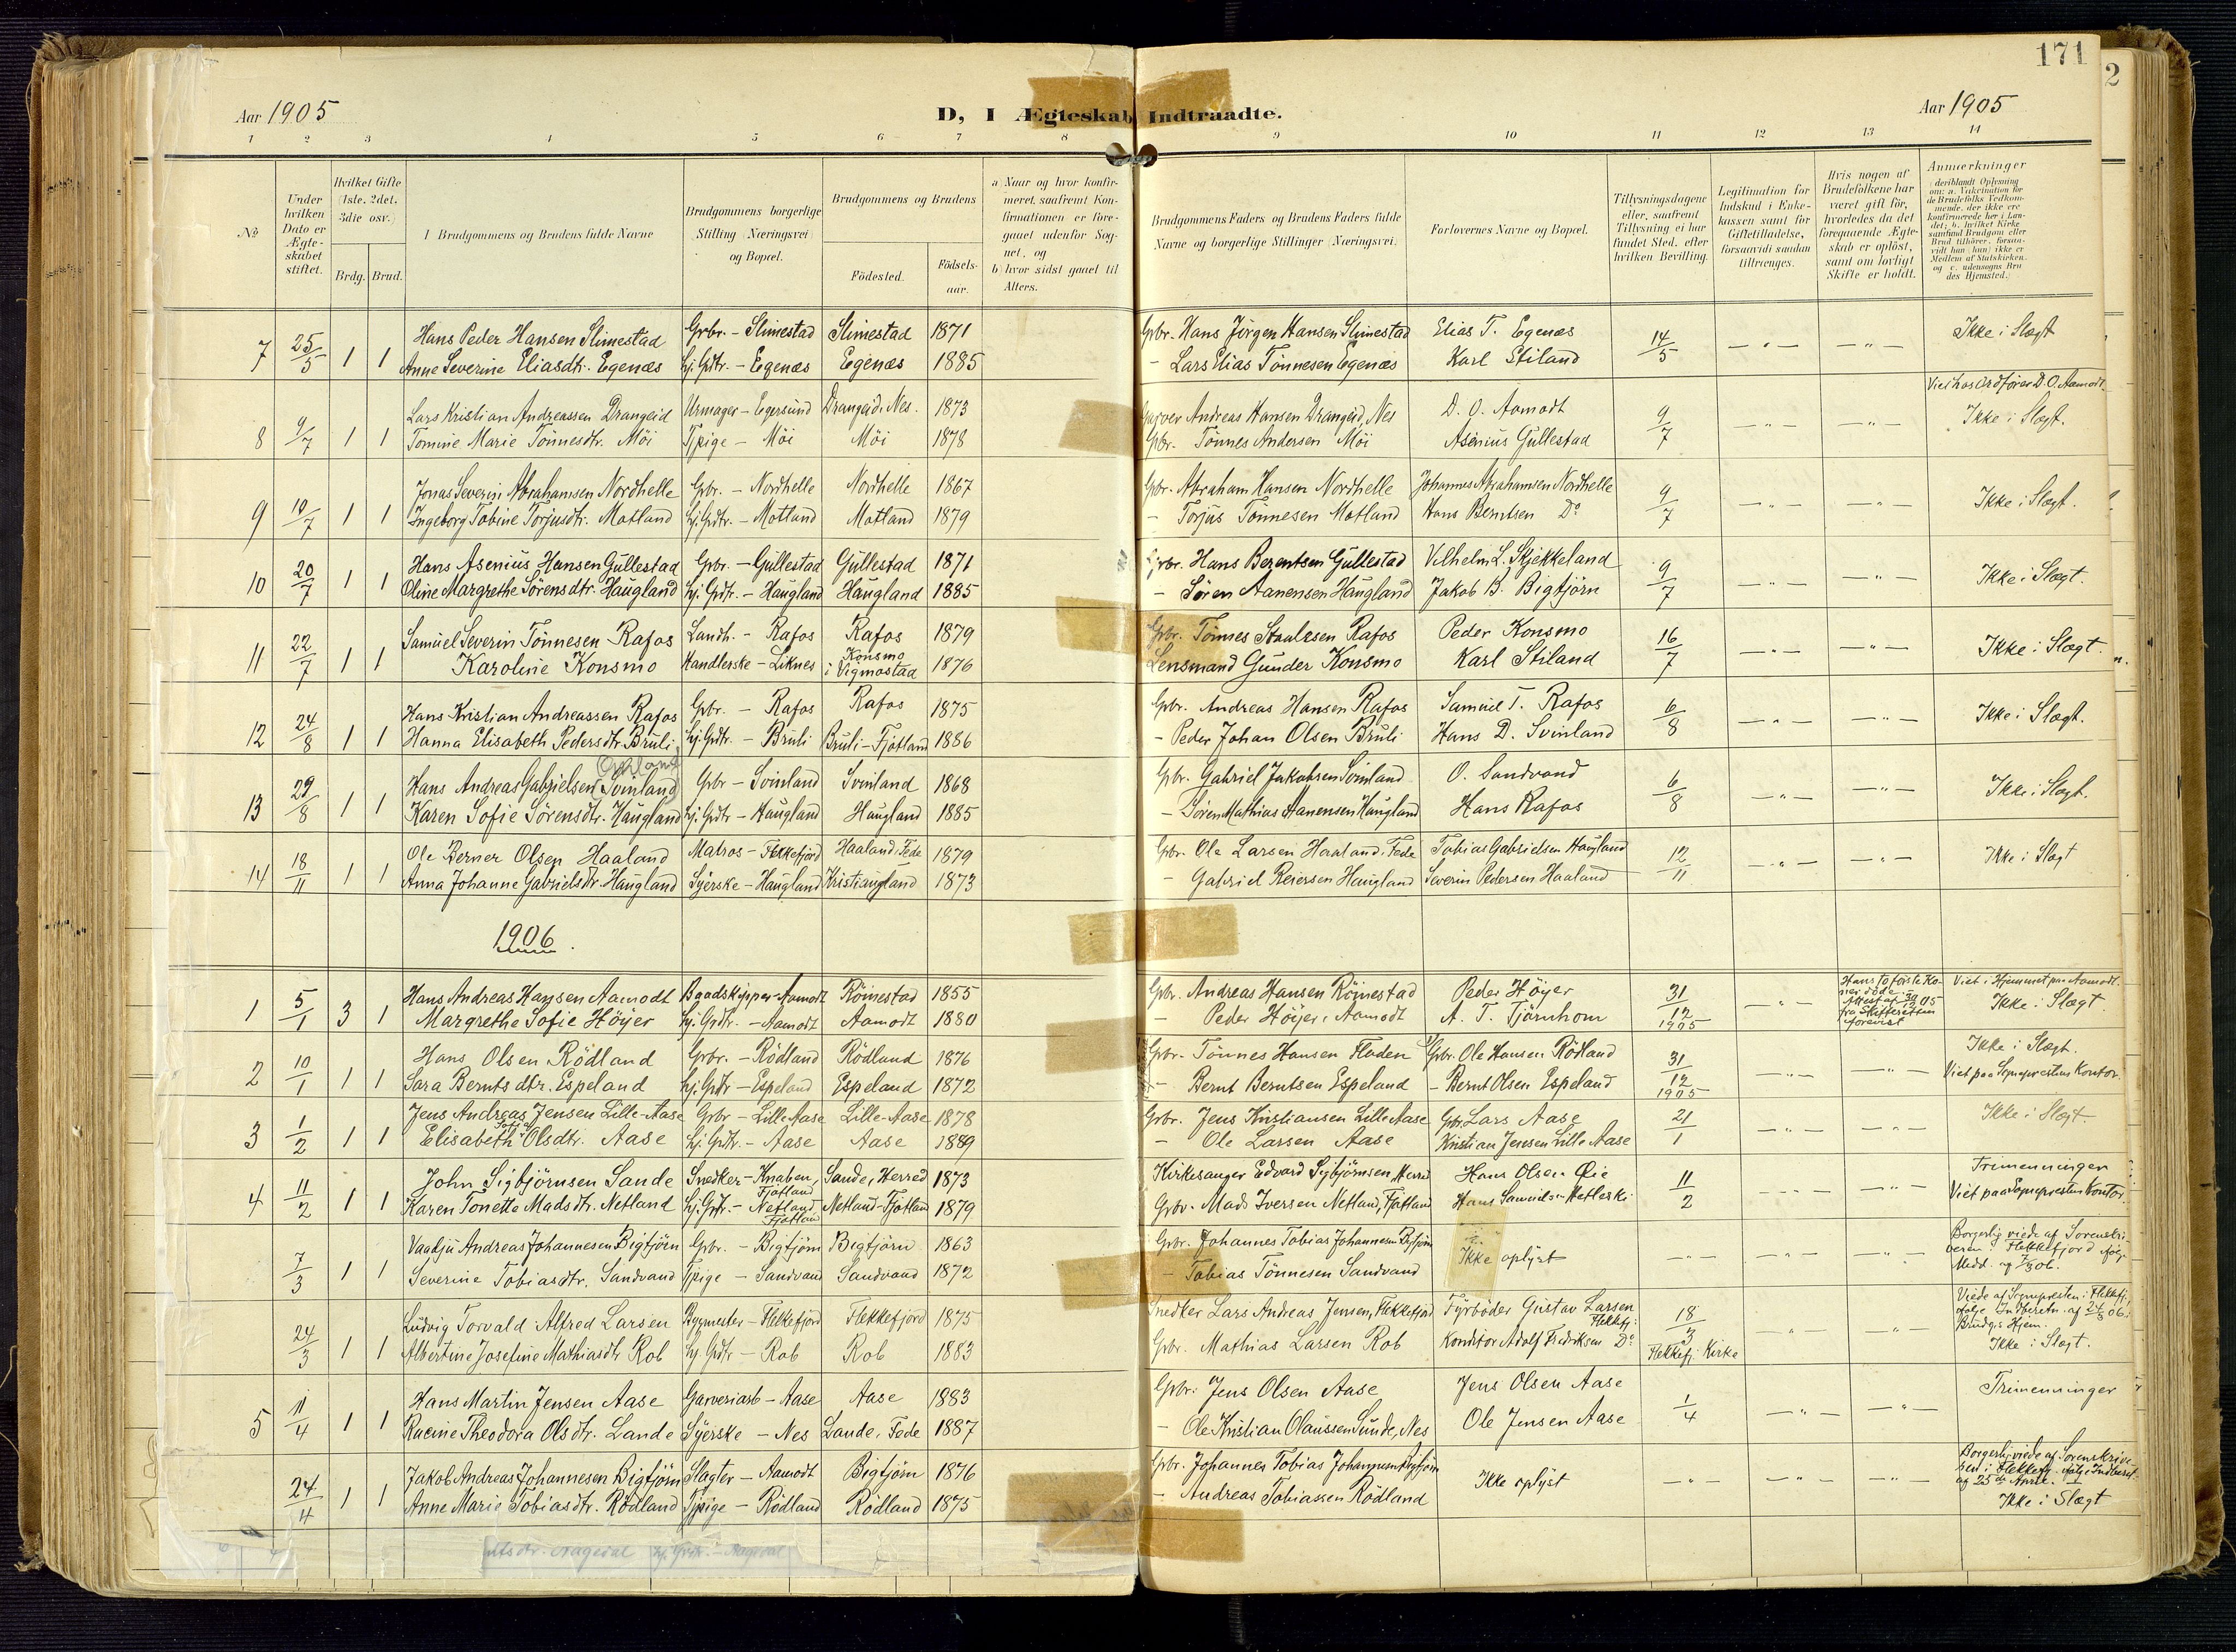 171
2
Aar 1905
D, I Ægteskab Indtraadte.
Aar 1905
1 2 3 4 5 6 7 8 9 10 11 12 13 14
No
Under hvilken Dato er Ægteskabet stiftet.
Hvilket Gifte (1ste, 2det, 3die osv.)
Brdg. Brud.
Brudgommens og Brudens fulde Navne
Brudgommens borgerlige Stilling (Næringsvei) og Bopæl.
Brudgommens og Brudens
Födested.
Födselsaar.
a) Naar og hvor konfirmeret, saafremt Konfirmationen er foregaaet udenfor Sognet, og
b) hvor sidst gaaet til Alters.
Brudgommens Faders og Brudens Faders fulde Navne og borgerlige Stillinger (Næringsvei).
Forlovernes Navne og Bopæl.
Tillysningsdagene eller, saafremt Tillysning ei har fundet Sted, efter hvilken Bevilling.
Legitimation for Indskud i Enkekassen samt for Giftetilladelse, forsaavidt saadan tiltrænges.
Hvis nogen af Brudefolkene har været gift før, hvorledes da det foregaaende Ægteskab er oplöst, samt om lovligt Skifte er holdt.
Anmærkninger
(deriblandt Oplysning om: a. Vakcination for de Brudefolks Vedkommende, der ikke ere konfirmerede her i Landet; b. hvilket Kirkesamfund Brudgom eller Brud tilhörer, forsaavidt han (hun) ikke er Medlem af Statskirken, og c. udensogns Brudes Hjemsted.)
7 25/5 1 1 Hans Peder Hansen Slimestad Grbr. - Slimestad Slimestad 1871 Gbr. Hans Jörgen Hansen Slimestad Elias T. Egenæs 14/5 Ikke i Slægt
Anne Severine Eliasdtr. Egenæs hj. Grdtr. - Egenæs Egenæs 1885 - Lars Elias Tönnesen Egenæs Karl Stiland
Viet hos Ordförer D. O. Aamodt.
8 9/7 1 1 Lars Kristian Andreassen Drangeid Urmager - Egersund Drangeid, Nes. 1873 Garver Andreas Hansen Drangeid, Nes D. O. Aamodt 9/7 Ikke i Slægt.
Tomine Marie Tönnesdtr. Möi Tjpige - Möi Möi 1878 Gbr. Tönnes Andersen Möi Asenius Gullestad
9 10/7 1 1 Jonas Severin Abrahamsen Nordhelle Gbr. - Nordhelle Nordhelle 1867 Gbr. Abraham Hansen Nordhelle Johannes Abrahamsen Nordhelle 9/7 Ikke i Slægt.
Ingeborg Tobine Torjusdtr. Motland hj. Grdtr. - Motland Motland 1879 - Torjus Tönnesen Motland Hans Berntsen Do
10 20/7 1 1 Hans Asenius Hansen Gullestad Gbr. - Gullestad Gullestad 1871 Grbr. Hans Berentsen Gullestad Vilhelm L. Skjekkeland 9/7 Ikke i Slægt.
Oline Margrethe Sörensdtr. Haugland hj. Grdtr. - Haugland Haugland 1885 - Sören Aanensen Haugland Jakob B. Bigtjörn
11 22/7 1 1 Samuel Severin Tönnesen Rafos Landh. - Rafos Rafos 1879 Gbr. Tönnes Staalesen Rafos Peder Konsmo 16/7 Ikke i Slægt.
Karoline Konsmo Handlerske - Liknes Konsmo i Vigmostad 1876 Lensmand Gunder Konsmo Karl Stiland
12 24/8 1 1 Hans Kristian Andreassen Rafos Gbr. - Rafos Rafos 1875 Gbr. Andreas Hansen Rafos Samuel T. Rafos 6/8 Ikke i Slægt.
Hanna Elisabeth Pedersdtr. Bruli hj. Grdtr. - Bruli Bruli - Fjotland 1886 - Peder Johan Olsen Bruli Hans D. Svinland
13 29/8 1 1 Hans Andreas Gabrielsen Svinland Gbr - Svinland Svinland 1868 Gbr. Gabriel Jakobsen Svinland O. Sandvand 6/8 Ikke i Slægt.
Karen Sofie Sörensdtr. Haugland hj. Grdtr - Haugland Haugland 1885 - Sören Mathias Aanensen Haugland Hans Rafos
14 18/11 1 1 Ole Berner Olsen Haaland Matros - Flekkefjord Haaland, Fede 1879 Gbr. Ole Larsen Haaland, Fede Tobias Gabrielsen Haugland 12/11 Ikke i Slægt
Anna Johanne Gabrielsdtr. Haugland Syerske - Haugland Kristiangland 1873 - Gabriel Reiersen Haugland Severin Pedersen Haaland
1906.
1 5/1 3 1 Hans Andreas Hansen Aamodt Baadskipper - Aamodt Röinestad 1855 Gbr. Andreas Hansen Röinestad Peder Höyer 31/12 1905 Hans to förste Koner döde. Attest af 30/12 05 fra Skifteretten forevist Viet i Hjemmet paa Aamodt.
Margrethe Sofie Höyer hj. Grdtr. - Aamodt Aamodt 1880 - Peder Höyer, Aamodt A. T. Tjörnhom Ikke i Slægt
2 10/1 1 1 Hans Olsen Rödland Grbr. - Rödland Rödland 1876 Gbr. Tönnes Hansen Floden Gbr. Ole Hansen Rödland 31/12 1905 Ikke i Slægt.
Sara Berntsdtr. Espeland hj. Grdtr - Espeland Espeland 1872 - Bernt Berntsen Espeland - Bernt Olsen Espeland Viet paa Sognepræstens Kontor.
3 1/2 1 1 Jens Andreas Jensen Lille-Aase Grbr - Lille Aase Lille-Aase 1878 Grbr. Jens Kristiansen Lille Aase Gbr. Lars Aase 21/1 Ikke i Slægt.
Elisabeth Olsdtr. Aase hj. Grdtr. - Aase Aase 1889 - Ole Larsen Aase Kristian Jensen Lille Aase
4 11/2 1 1 John Sigbjörnsen Sande Snedker - Knaben, Fjotland Sande, Herred 1873 Kirkesanger Edvard Sigbjörnsen, Herred Hans Olsen Öie 11/2 Trimenninger
Karen Tonette Madsdtr. Netland hj. Grdtr. - Netland, Fjotland Netland - Fjotland 1879 Grbr. Mads Iversen Netland, Fjotland Hans Samuelsen Viet paa Sognepræstens Kontor.
7/3 1 1 Vaalju Andreas Johannesen Bigtjörn Gbr. - Bigtjörn Bigtjörn 1863 Gbr. Johannes Tobias Johannesen Bigtjörn Ikke oplyst Borgerlig viede af Sorenskriveren i Flekkefjord ifölge Medd. af 7/3 06.
Severine Tobiasdtr. Sandvand Tjpige - Sandvand Sandvand 1872 - Tobias Tönnesen Sandvand
24/3 1 1 Ludvig Torvald Alfred Larsen Bygmester - Flekkefjord Flekkefjord 1875 Snedker Lars Andreas Jensen, Flekkefjord Fyrböder Gustav Larsen Flekkefj. 18/3 Flekkefj. Kirke Viede af Sognepræsten i Flekkefj. ifölge Indberetn. af 24/3 06. i Brudg.s Hjem.
Albertine Josefine Mathiasdtr Rob hj. Grdtr - Rob Rob 1883 Gbr. Mathias Larsen Rob Konditor Adolf Fredriksen Do Ikke i Slægt.
5 11/4 1 1 Hans Martin Jensen Aase Garveriarb - Aase Aase 1883 Gbr. Jens Olsen Aase Jens Olsen Aase 1/4 Trimenninger
Racine Theodora Olsdtr. Lande Syerske - Nes Lande, Fede 1887 - Ole Kristian Olaussen Sunde, Nes Ole Jensen Aase
24/4 1 1 Jakob Andreas Johannesen Bigtjörn Slagter - Aamodt Bigtjörn 1876 Gbr. Johannes Tobias Johannesen Bigtjörn Ikke oplyst Borgerlig viede af Sorenskriveren i Flekkefj. ifölge Indberet. af 25de April.
Anne Marie Tobiasdtr. Rödland Tjpige - Rödland Rödland 1875 - Andreas Tobiassen Rödland Ikke i Slægt